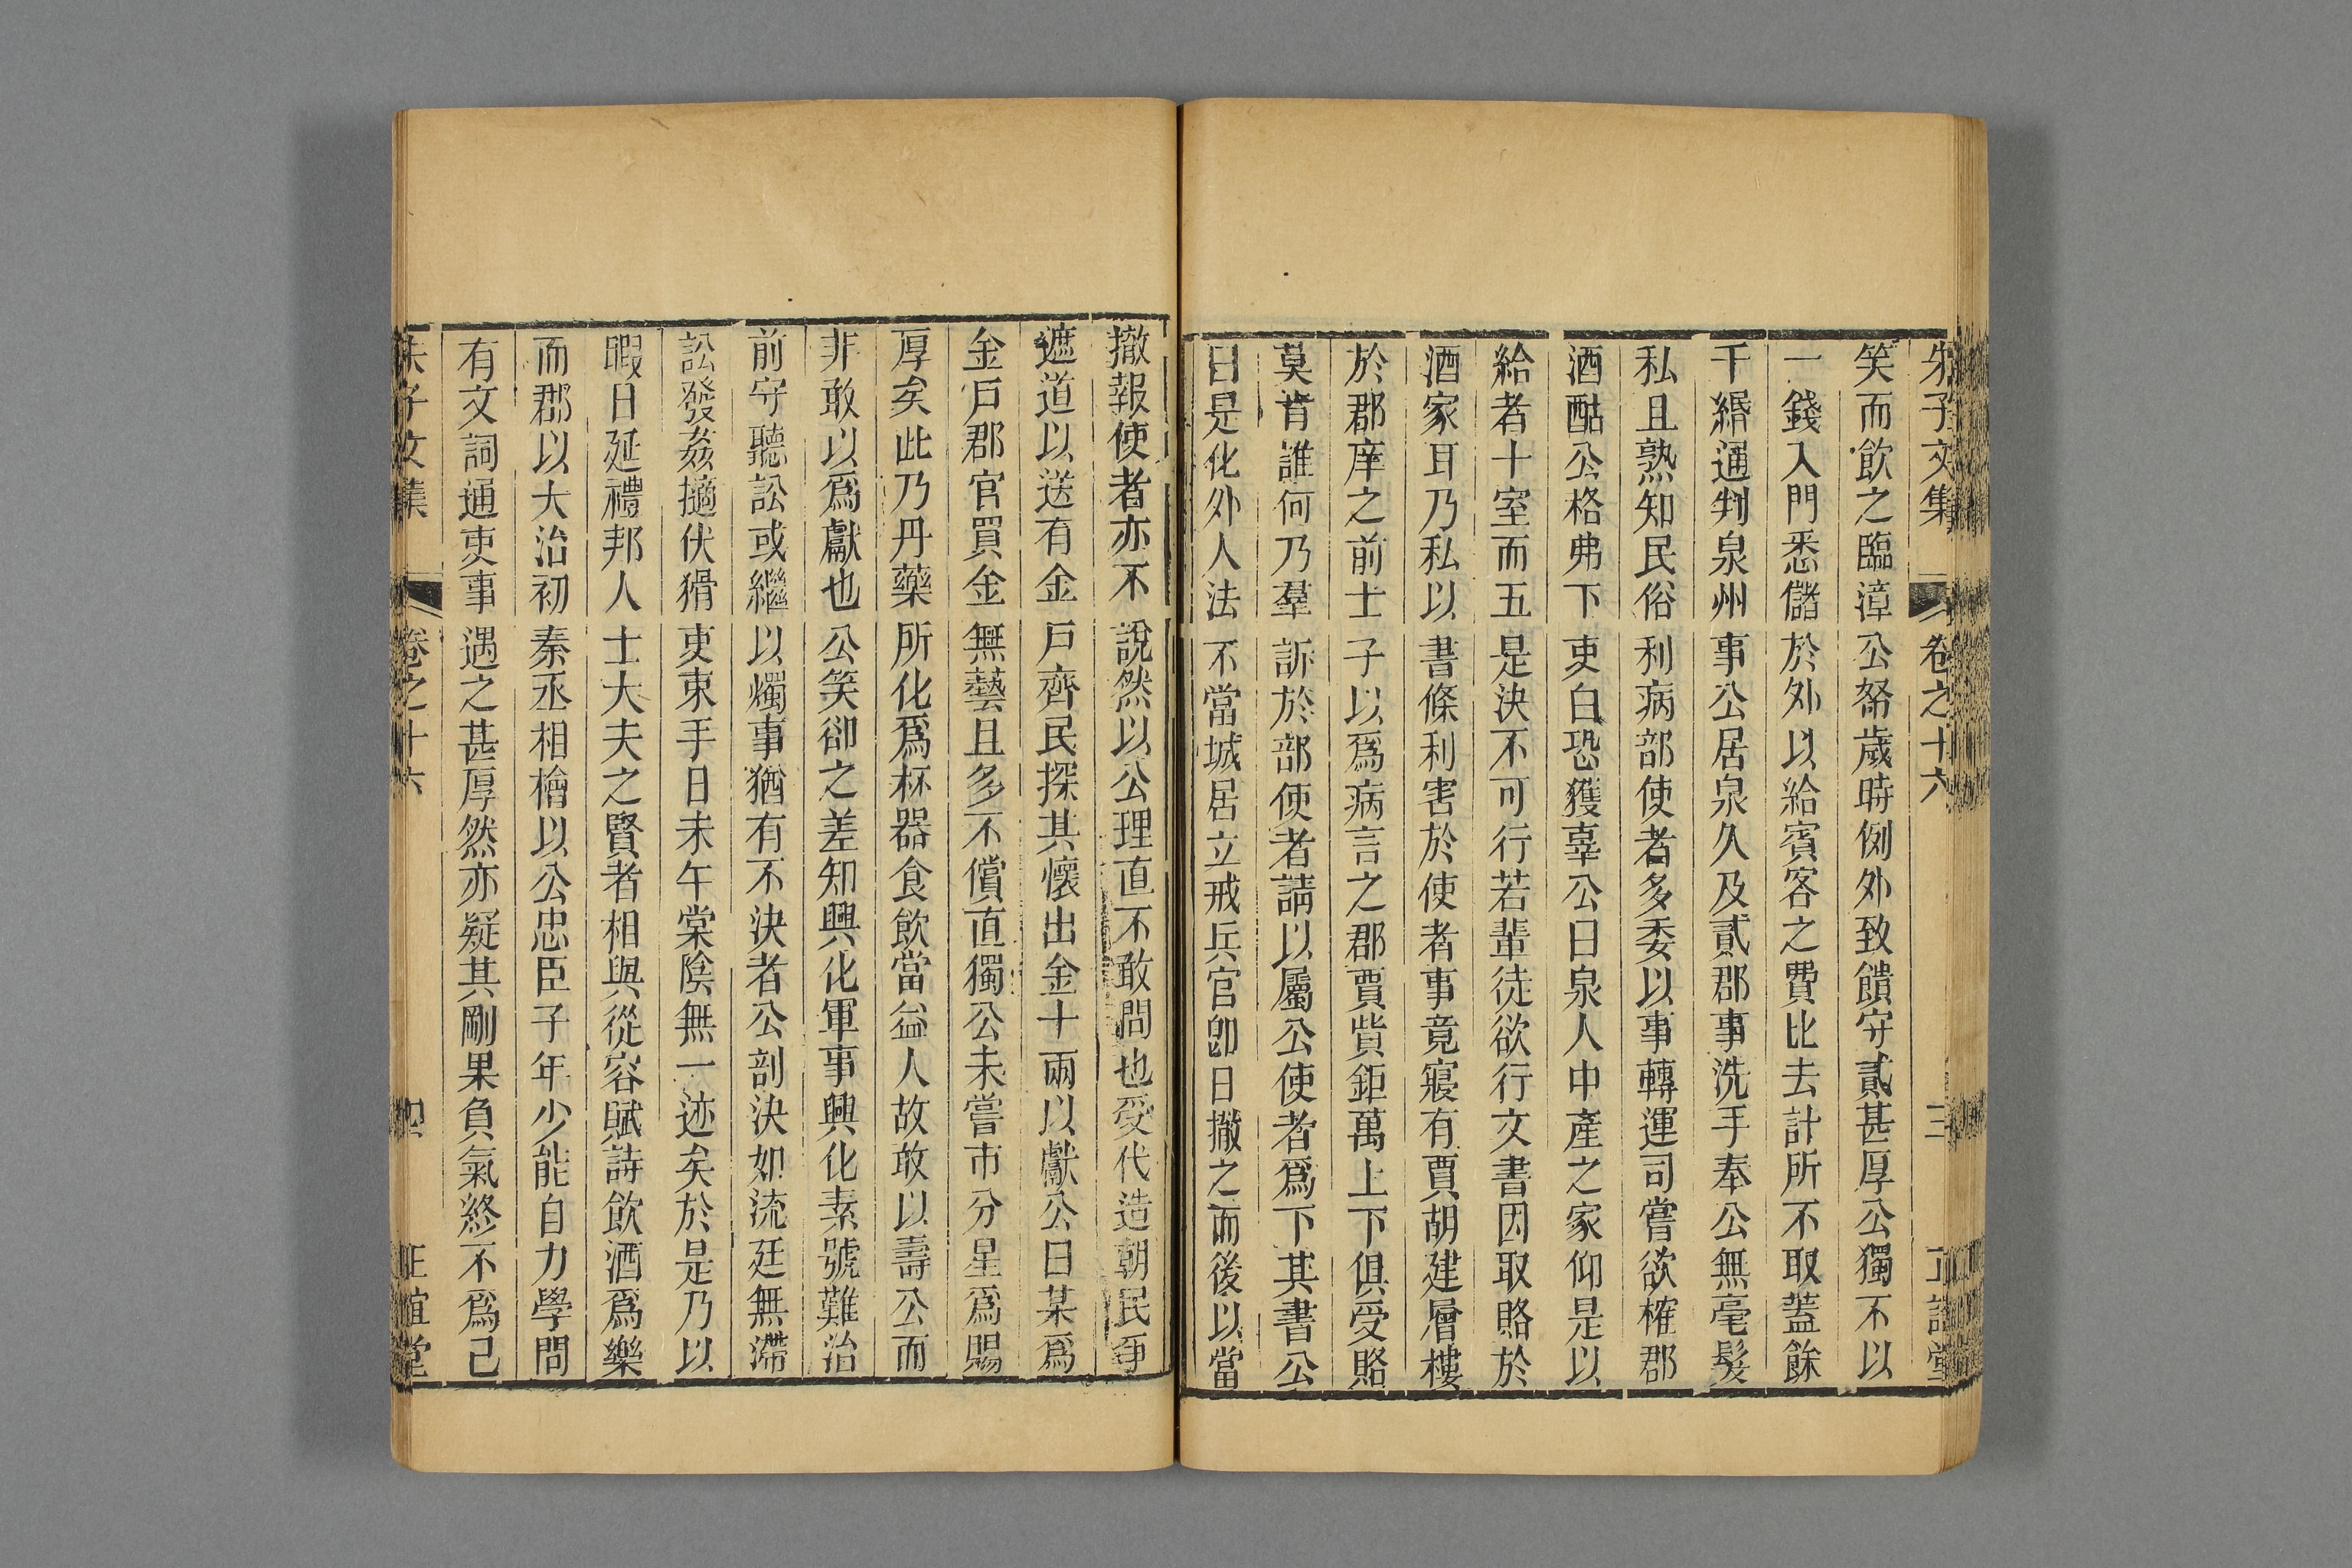 朱子文集 卷之十六 三 正誼堂
笑而飲之臨漳公帑歲時例外致饋守貳甚厚公獨不以
一錢入門悉儲於外以給賓客之費比去計所不取蓋餘
千緡通判泉州事公居泉久及貳郡事洗手奉公無毫髮
私且熟知民俗利病部使者多委以事轉運司嘗欲榷郡
酒酤公格弗下吏白恐獲辜公曰泉人中產之家仰是以
給者十室而五是決不可行若輩徒欲行文書因取賂於
酒家耳乃私以書條利害於使者事竟寢有賈胡建層樓
於郡庠之前士子以爲病言之郡賈貲鉅萬上下俱受賂
莫肯誰何乃羣訴於部使者請以屬公使者爲下其書公
曰是化外人法不當城居立戒兵官卽日撤之而後以當
撤報使者亦不說然以公理直不敢問也受代造朝民爭
遮道以送有金戶齊民探其懷出金十兩以獻公曰某爲
金戶郡官買金無藝且多不償直獨公未嘗市分星爲賜
厚矣此乃丹藥所化爲杯器食飲當益人故敢以壽公而
非敢以爲獻也公笑卻之差知興化軍事興化素號難治
前守聽訟或繼以燭事猶有不決者公剖決如流廷無滯
訟發姦擿伏猾吏束手日未午棠陰無一迹矣於是乃以
暇日延禮邦人士大夫之賢者相與從容賦詩飲酒爲樂
而郡以大治初秦丞相檜以公忠臣子年少能自力學問
有文詞通吏事遇之甚厚然亦疑其剛果負氣終不爲己
朱子文集 卷之十六 四 正誼堂